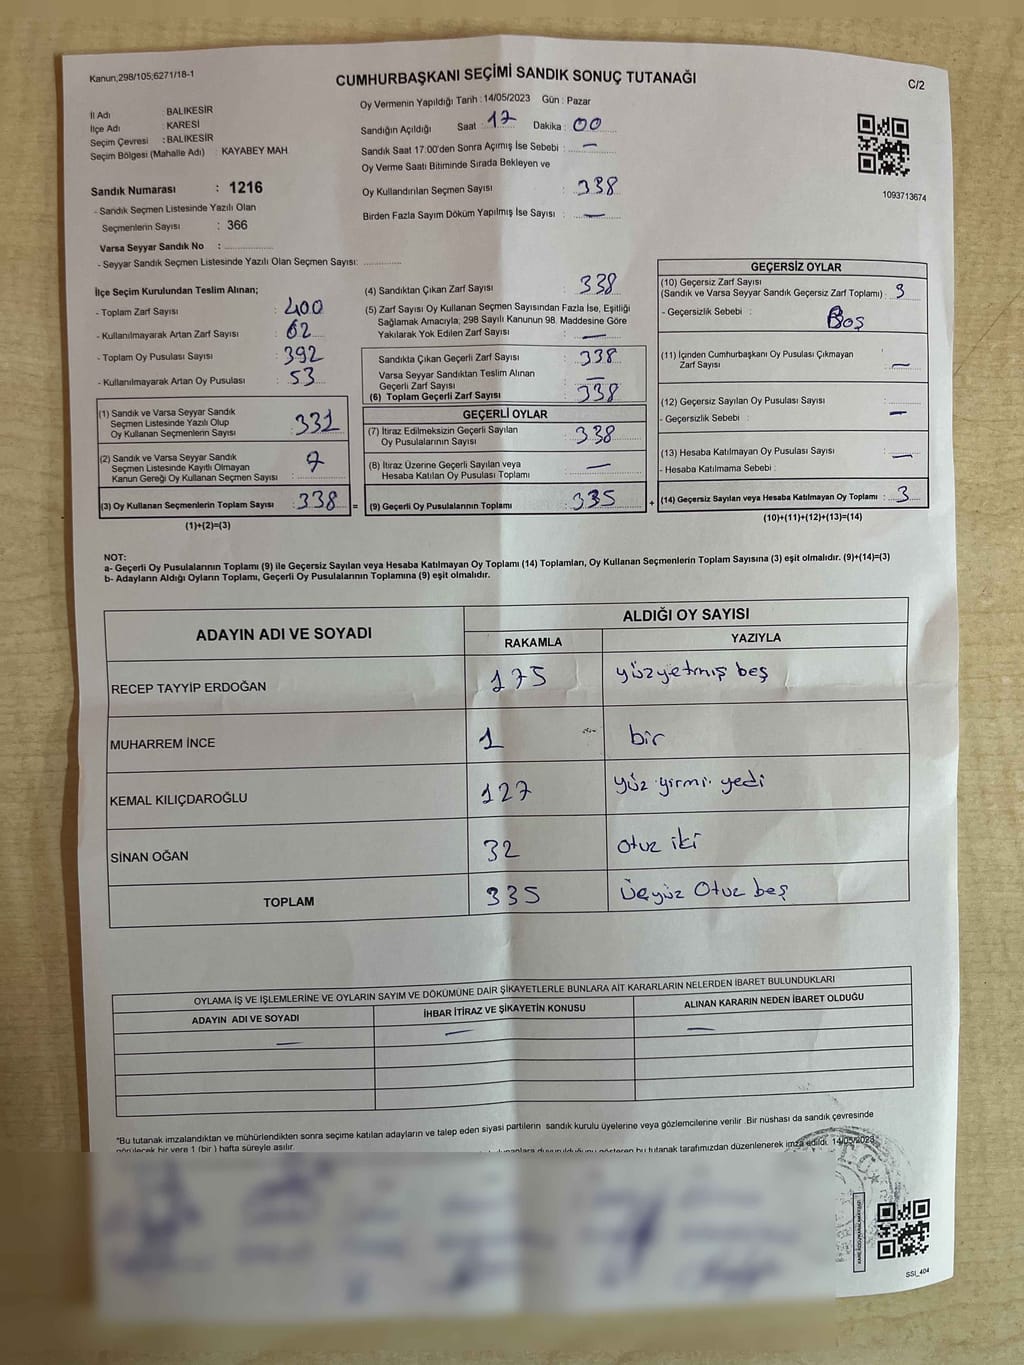 Kanun,298/105;6271/18-1
CUMHURBAŞKANI SEÇİMİ SANDIK SONUÇ TUTANAĞI
C/2
İl Adı : BALIKESİR
İlçe Adı : KARESİ
Seçim Çevresi : BALIKESİR
Seçim Bölgesi (Mahalle Adı) : KAYABEY MAH.
Sandık Numarası : 1216
- Sandık Seçmen Listesinde Yazılı Olan
Seçmenlerin Sayısı : 366
Varsa Seyyar Sandık No :
- Seyyar Sandık Seçmen Listesinde Yazılı Olan Seçmen Sayısı:
Oy Vermenin Yapıldığı Tarih : 14/05/2023 Gün : Pazar
Sandığın Açıldığı Saat : 17 Dakika : 00
Sandık Saat 17:00'den Sonra Açımış İse Sebebi : —
Oy Verme Saati Bitiminde Sırada Bekleyen ve
Oy Kullandırılan Seçmen Sayısı : 338
Birden Fazla Sayım Döküm Yapılmış İse Sayısı : —
1093713674
İlçe Seçim Kurulundan Teslim Alınan;
- Toplam Zarf Sayısı : 400
- Kullanılmayarak Artan Zarf Sayısı : 62
- Toplam Oy Pusulası Sayısı : 392
- Kullanılmayarak Artan Oy Pusulası : 53
(1) Sandık ve Varsa Seyyar Sandık
Seçmen Listesinde Yazılı Olup
Oy Kullanan Seçmenlerin Sayısı : 331
(2) Sandık ve Varsa Seyyar Sandık
Seçmen Listesinde Kayıtlı Olmayan
Kanun Gereği Oy Kullanan Seçmen Sayısı : 7
(3) Oy Kullanan Seçmenlerin Toplam Sayısı : 338
(1)+(2)=(3)
(4) Sandıktan Çıkan Zarf Sayısı : 338
(5) Zarf Sayısı Oy Kullanan Seçmen Sayısından Fazla İse, Eşitliği
Sağlamak Amacıyla; 298 Sayılı Kanunun 98. Maddesine Göre
Yakılarak Yok Edilen Zarf Sayısı : —
Sandıkta Çıkan Geçerli Zarf Sayısı : 338
Varsa Seyyar Sandıktan Teslim Alınan
Geçerli Zarf Sayısı : —
(6) Toplam Geçerli Zarf Sayısı : 338
GEÇERLİ OYLAR
(7) İtiraz Edilmeksizin Geçerli Sayılan
Oy Pusulalarının Sayısı : 338
(8) İtiraz Üzerine Geçerli Sayılan veya
Hesaba Katılan Oy Pusulası Toplamı : —
= (9) Geçerli Oy Pusulalarının Toplamı : 335 +
GEÇERSİZ OYLAR
(10) Geçersiz Zarf Sayısı
(Sandık ve Varsa Seyyar Sandık Geçersiz Zarf Toplamı) : 3
- Geçersizlik Sebebi : Boş
(11) İçinden Cumhurbaşkanı Oy Pusulası Çıkmayan
Zarf Sayısı : —
(12) Geçersiz Sayılan Oy Pusulası Sayısı :
- Geçersizlik Sebebi : —
(13) Hesaba Katılmayan Oy Pusulası Sayısı : —
- Hesaba Katılmama Sebebi :
(14) Geçersiz Sayılan veya Hesaba Katılmayan Oy Toplamı : 3
(10)+(11)+(12)+(13)=(14)
NOT:
a- Geçerli Oy Pusulalarının Toplamı (9) ile Geçersiz Sayılan veya Hesaba Katılmayan Oy Toplamı (14) Toplamları, Oy Kullanan Seçmenlerin Toplam Sayısına (3) eşit olmalıdır. (9)+(14)=(3)
b- Adayların Aldığı Oyların Toplamı, Geçerli Oy Pusulalarının Toplamına (9) eşit olmalıdır.
ADAYIN ADI VE SOYADI ALDIĞI OY SAYISI
RAKAMLA YAZIYLA
RECEP TAYYİP ERDOĞAN 175 yüzyetmiş beş
MUHARREM İNCE 1 bir
KEMAL KILIÇDAROĞLU 127 yüz yirmi yedi
SİNAN OĞAN 32 otuz iki
TOPLAM 335 Üçyüz Otuz beş
OYLAMA İŞ VE İŞLEMLERİNE VE OYLARIN SAYIM VE DÖKÜMÜNE DAİR ŞİKAYETLERLE BUNLARA AİT KARARLARIN NELERDEN İBARET BULUNDUKLARI
ADAYIN ADI VE SOYADI İHBAR İTİRAZ VE ŞİKAYETİN KONUSU ALINAN KARARIN NEDEN İBARET OLDUĞU
— — —
*Bu tutanak imzalandıktan ve mühürlendikten sonra seçime katılan adayların ve talep eden siyasi partilerin sandık kurulu üyelerine veya gözlemcilerine verilir. Bir nüshası da sandık çevresinde
görülecek bir yere 1 (bir) hafta süreyle asılır.
bu tutanak tarafımızdan düzenlenerek imza edildi. 14/05/2023
SSI_404